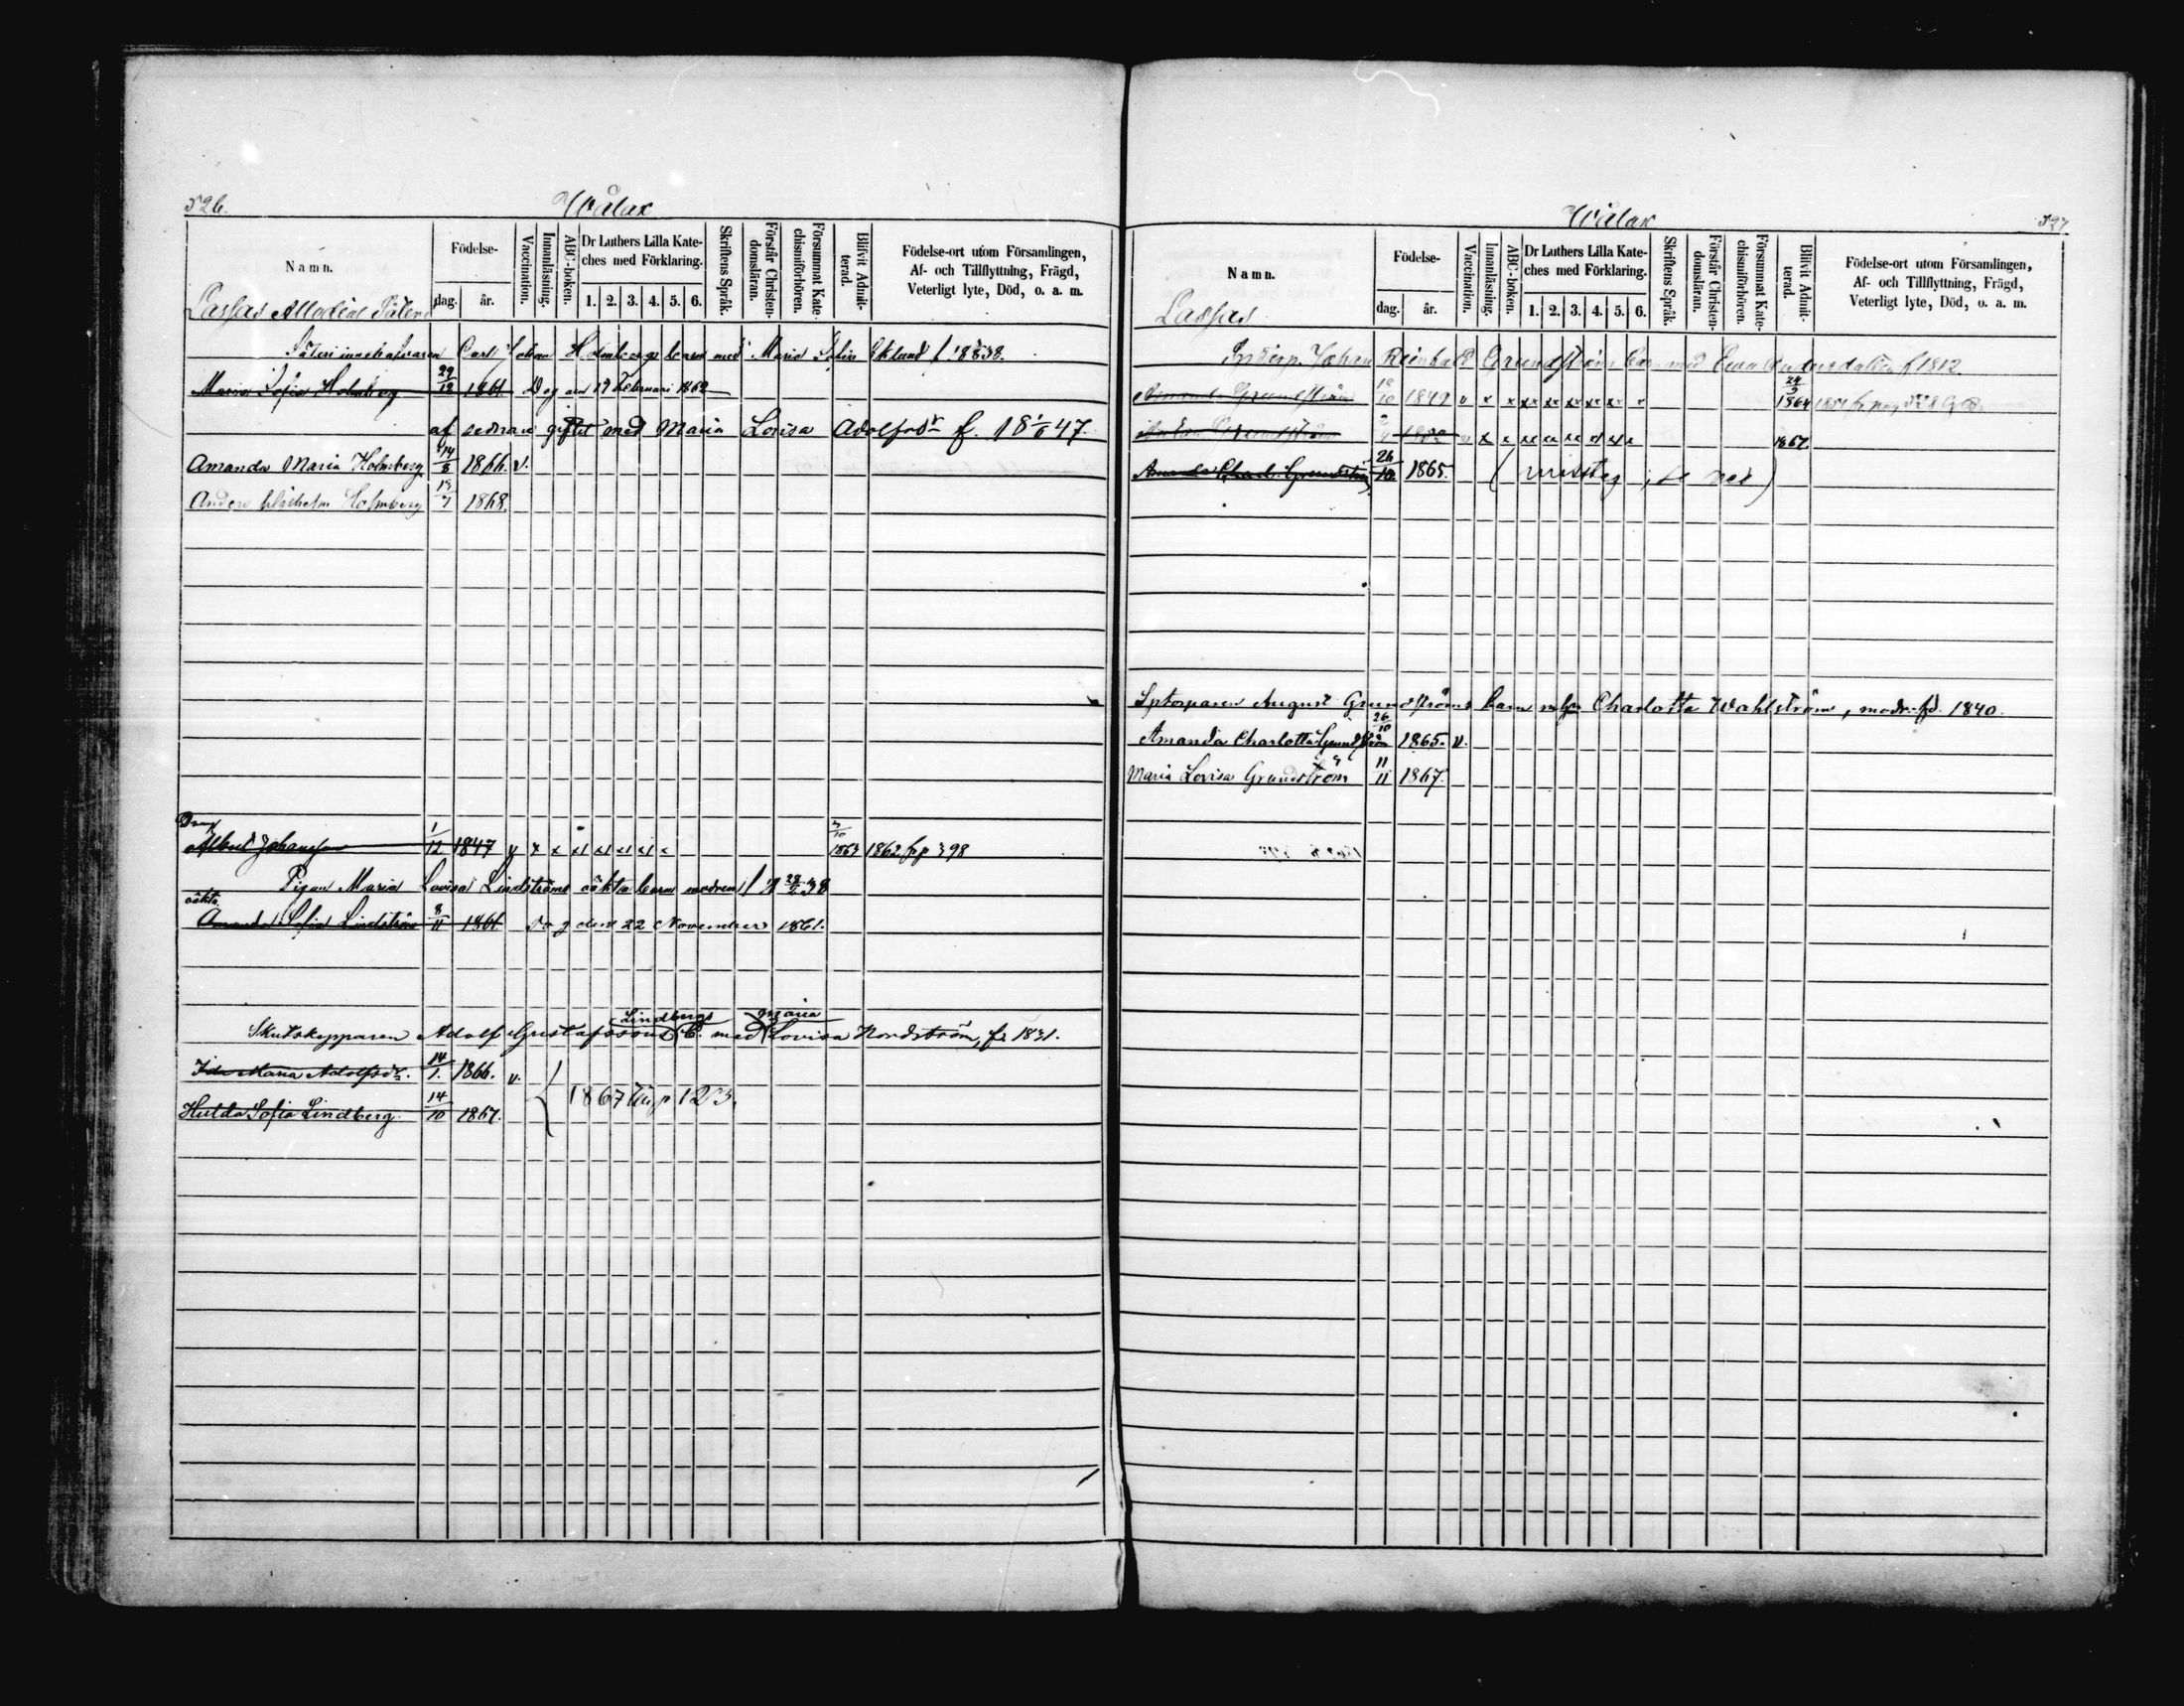 326.
Wålax
Namn.
Födelse-
dag.
år.
Vaccination.
Innanläsning.
ABC-boken.
Dr Luthers Lilla Kate-
ches med Förklaring.
1. 2. 3. 4. 5. 6.
Skriftens Språk.
Förstår Christen-
domsläran.
Försummat Kate-
chismiförhören.
Blifvit Admit-
terad.
Födelse-ort utom Församlingen,
Af- och Tillflyttning, Frägd,
Veterligt lyte, Död, o. a. m.
Lassas
Säteri innehafvaren Carl Johan Holmbergs barn med Maria Sofia Eklund f. 1838.
Maria Sofia Holmberg 29/12 1861. Dog den 19 Februari 1862
af sednare giftet med Maria Lovisa Adolfsdr f. 18 1/6 47.
Amanda Maria Holmberg 14/8 1866. v.
Anders Wilhelm Holmberg 13/7 1868.
Dräng
Albert Johansson 1/12 1847 v x x x1 x1 x1 x1 x 3/10 1863 1862 fr p 398
Pigan Maria Lovisa Lindströms oäkta barn modren f. 38
oäkta
Amanda Sofia Lindström 8/11 1861 Dog den 22 November 1861.
Lindbergs Maria
Skutskepparen Adolf Gustafssons B. med Lovisa Nordström, f. 1831.
Ida Maria Adolfsdr. 14/1. 1866. v.
1867 till p 123.
Hulda Sofia Lindberg. 14/10 1867.
327
Wålax
Namn.
Födelse-
dag.
år.
Vaccination.
Innanläsning.
ABC-boken.
Dr Luthers Lilla Kate-
ches med Förklaring.
1. 2. 3. 4. 5. 6.
Skriftens Språk.
Förstår Christen-
domsläran.
Försummat Kate-
chismiförhören.
Blifvit Admit-
terad.
Födelse-ort utom Församlingen,
Af- och Tillflyttning, Frägd,
Veterligt lyte, Död, o. a. m.
Lassas
Johan Reinhold Grundströms barn med Ewa Andersdotter f. 1812
Amanda Grundström 18/10 1849 v x x xx xx xx xx xx x 24/9 1864
Grundström v x x xx xx xx x x 1867.
Amanda Charl. Grundström 26/10 1865. (misstag; se ned)
Sptorparen August Grundströms barn m. h. Charlotta Wahlström, modr. fd. 1840.
Amanda Charlotta Grundström 26/10 1865. v.
Maria Lovisa Grundström 11/11 1867.